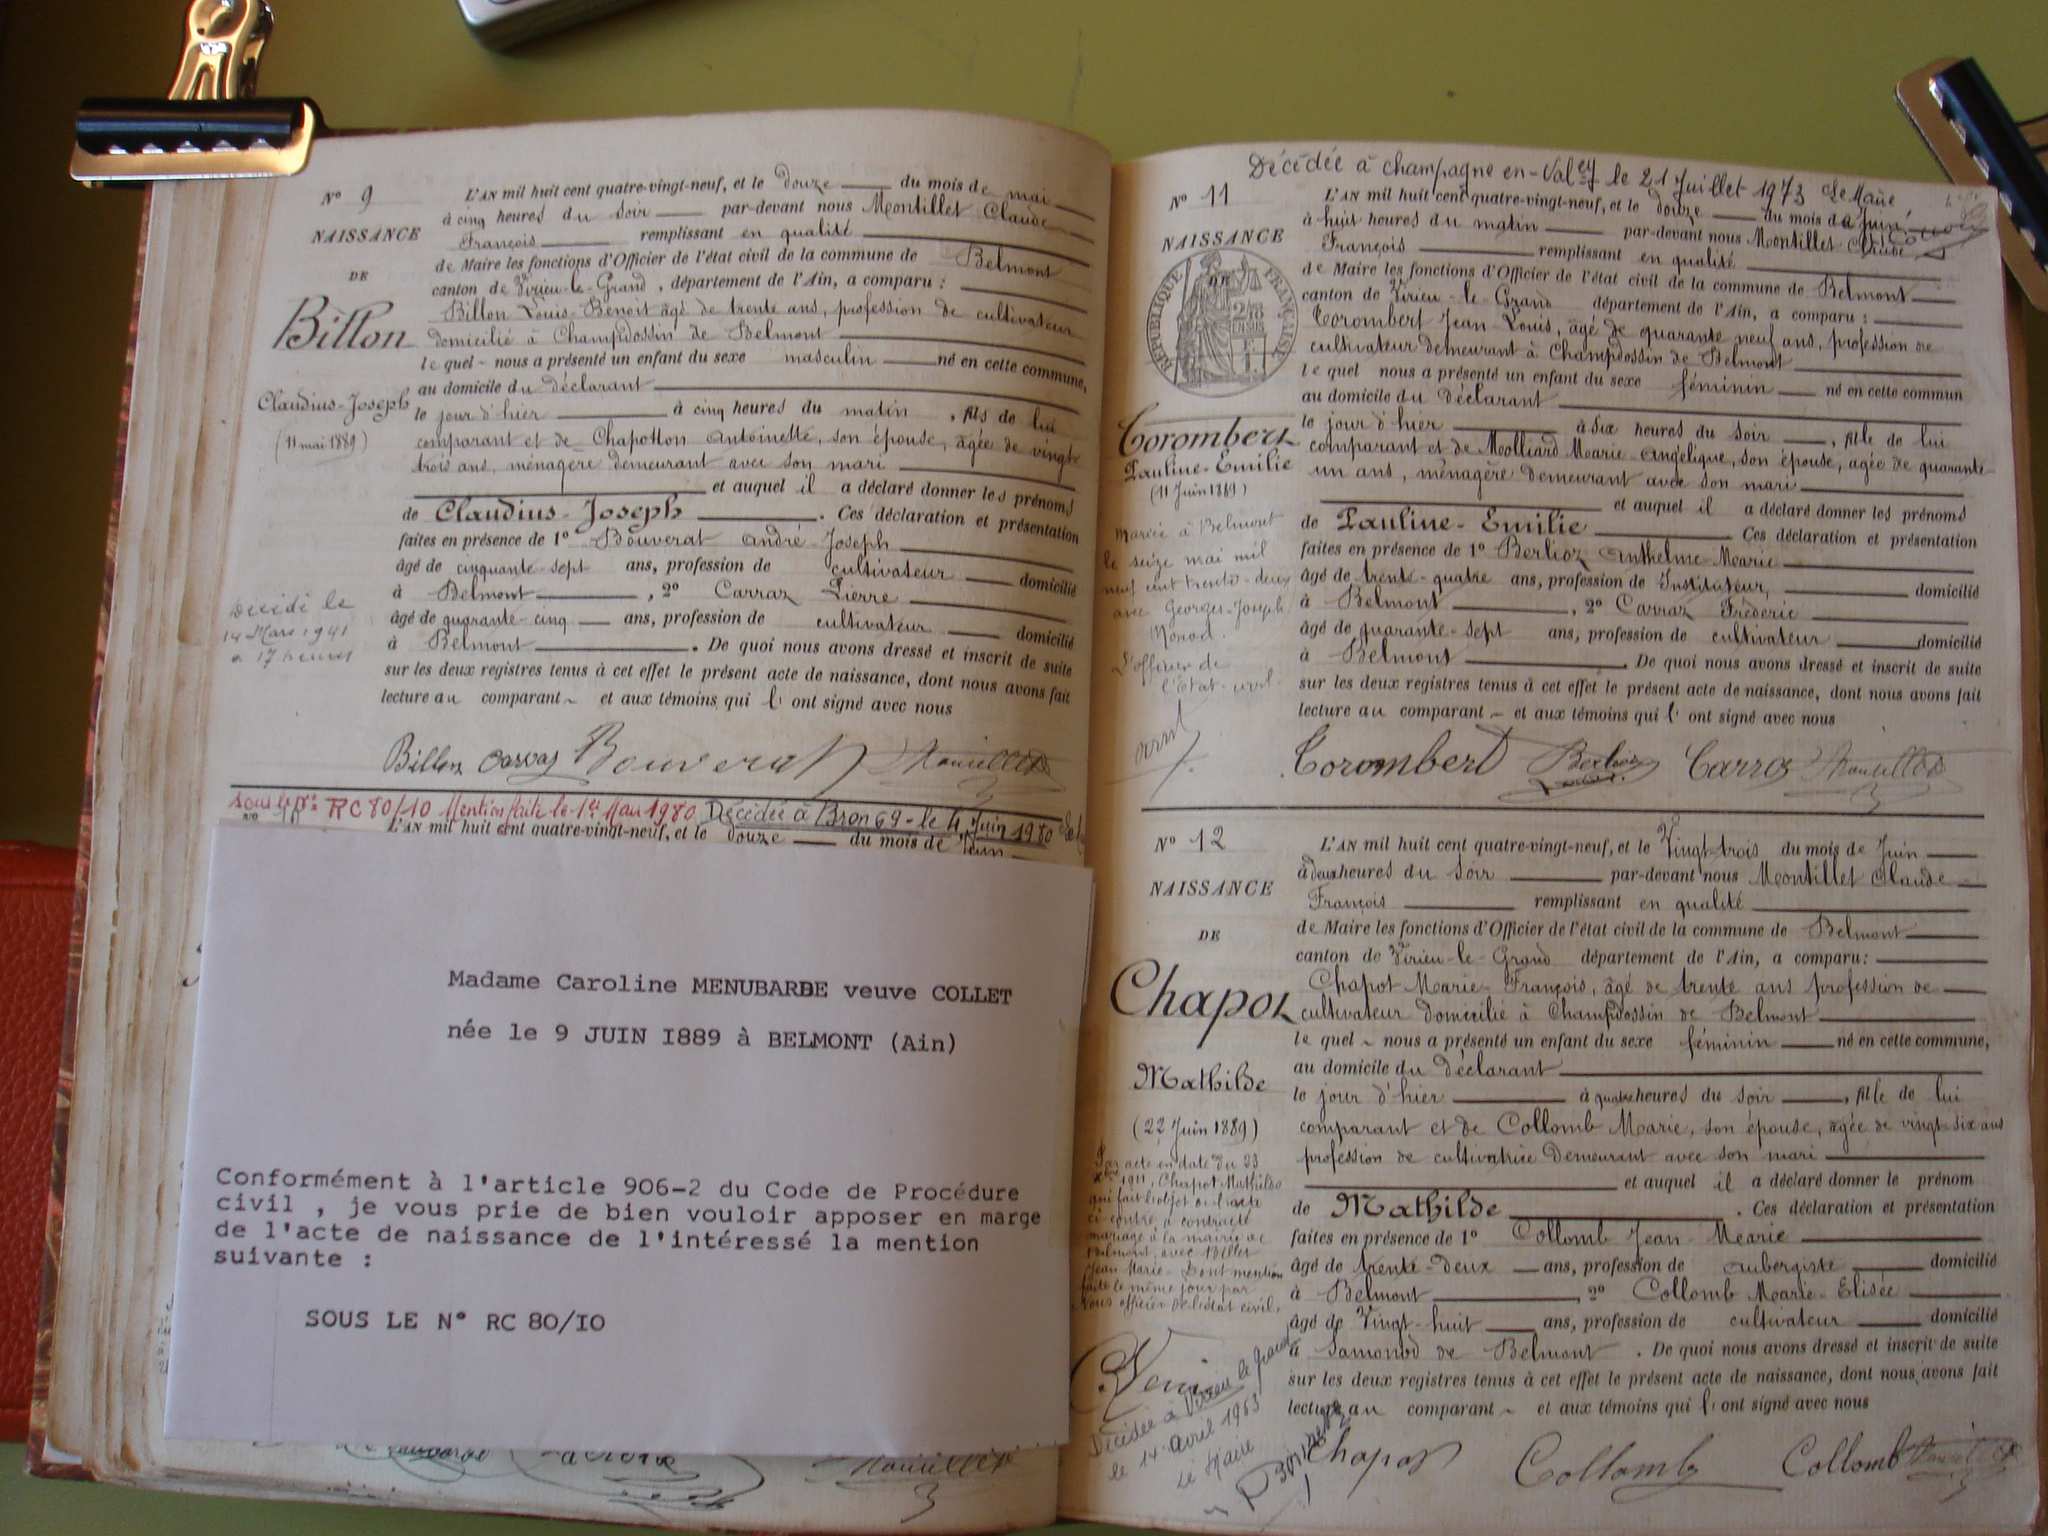 N° 9
NAISSANCE
DE
Billon
Claudius-Joseph
(11 mai 1889)
Décédé le
14 Mars 1941
à 17 heures
L'AN mil huit cent quatre-vingt-neuf, et le douze du mois de mai
à cinq heures du soir par-devant nous Montillet Claude
François remplissant en qualité
de Maire les fonctions d'Officier de l'état civil de la commune de Belmont
canton de Virieu-le-Grand, département de l'Ain, a comparu :
Billon Louis-Benoit âgé de trente ans, profession de cultivateur
domicilié à Champdossin de Belmont
le quel nous a présenté un enfant du sexe masculin né en cette commune,
au domicile du déclarant
le jour d'hier à cinq heures du matin, fils de lui
comparant et de Chapotton Antoinette, son épouse, âgée de vingt
trois ans, ménagère demeurant avec son mari
et auquel il a déclaré donner les prénoms
de Claudius-Joseph. Ces déclaration et présentation
faites en présence de 1° Bouverat André-Joseph
âgé de cinquante-sept ans, profession de cultivateur domicilié
à Belmont, 2° Carraz Pierre
âgé de quarante-cinq ans, profession de cultivateur domicilié
à Belmont. De quoi nous avons dressé et inscrit de suite
sur les deux registres tenus à cet effet le présent acte de naissance, dont nous avons fait
lecture au comparant et aux témoins qui l'ont signé avec nous
Billon Carraz Bouverat Montillet
sous le N° RC 80/10 Mention faite le 1er Mars 1980 Décédée à Bron 69 - le 4 Juin 1980
N° 10
L'AN mil huit cent quatre-vingt-neuf, et le douze du mois de Juin
Madame Caroline MENUBARDE veuve COLLET
née le 9 JUIN I889 à BELMONT (Ain)
Conformément à l'article 906-2 du Code de Procédure
civil , je vous prie de bien vouloir apposer en marge
de l'acte de naissance de l'intéressé la mention
suivante :
SOUS LE N° RC 80/IO
Décédée à champagne en-Valey le 21 Juillet 1973 Le Maire
N° 11
NAISSANCE
DE
RÉPUBLIQUE FRANÇAISE
Corombert
Pauline-Emilie
(11 Juin 1889)
Mariée à Belmont
le seize mai mil
neuf cent trente-deux
avec Georges-Joseph
Monod.
L'officier de
l'Etat-civil.
L'AN mil huit cent quatre-vingt-neuf, et le douze du mois de Juin
à huit heures du matin par-devant nous Montillet Claude
François remplissant en qualité
de Maire les fonctions d'Officier de l'état civil de la commune de Belmont
canton de Virieu-le-Grand département de l'Ain, a comparu :
Corombert Jean-Louis, âgé de quarante neuf ans, profession de
cultivateur demeurant à Champdossin de Belmont
le quel nous a présenté un enfant du sexe féminin né en cette commun
au domicile du Déclarant
le jour d'hier à six heures du soir, fille de lui
comparant et de Molliard Marie-Angélique, son épouse, âgée de quarante
un ans, ménagère demeurant avec son mari
et auquel il a déclaré donner les prénoms
de Pauline-Emilie Ces déclaration et présentation
faites en présence de 1° Berlioz Anthelme-Marie
âgé de trente-quatre ans, profession de Instituteur, domicilié
à Belmont, 2° Carraz Frédéric
âgé de quarante-sept ans, profession de cultivateur domicilié
à Belmont. De quoi nous avons dressé et inscrit de suite
sur les deux registres tenus à cet effet le présent acte de naissance, dont nous avons fait
lecture au comparant et aux témoins qui l'ont signé avec nous
Corombert Berlioz Carraz Montillet
N° 12
NAISSANCE
DE
Chapot
Mathilde
(22 Juin 1889)
Par acte en date du 23
Xbre 1911, Chapot Mathilde
qui fait l'objet de l'acte
ci-contre, a contracté
mariage à la mairie de
Belmont, avec Billet
Jean Marie - Dont mention
faite le même jour par
Nous officier de l'état civil.
Décédée à Virieu le Grand
le 14 avril 1963
Le Maire
L'AN mil huit cent quatre-vingt-neuf, et le Vingt-trois du mois de Juin
à deux heures du soir par-devant nous Montillet Claude
François remplissant en qualité
de Maire les fonctions d'Officier de l'état civil de la commune de Belmont
canton de Virieu-le-Grand département de l'Ain, a comparu:
Chapot Marie-François, âgé de trente ans profession de
cultivateur domicilié à Champdossin de Belmont
le quel nous a présenté un enfant du sexe féminin né en cette commune,
au domicile du déclarant
le jour d'hier à quatre heures du soir, fille de lui
comparant et de Collomb Marie, son épouse, âgée de vingt-six ans
profession de cultivatrice demeurant avec son mari
et auquel il a déclaré donner le prénom
de Mathilde. Ces déclaration et présentation
faites en présence de 1° Collomb Jean-Marie
âgé de trente-deux ans, profession de aubergiste domicilié
à Belmont, 2° Collomb Marie-Elisée
âgé de Vingt-huit ans, profession de cultivateur domicilié
à Samonod de Belmont. De quoi nous avons dressé et inscrit de suite
sur les deux registres tenus à cet effet le présent acte de naissance, dont nous avons fait
lecture au comparant et aux témoins qui l'ont signé avec nous
Chapot Collomb Collomb Montillet